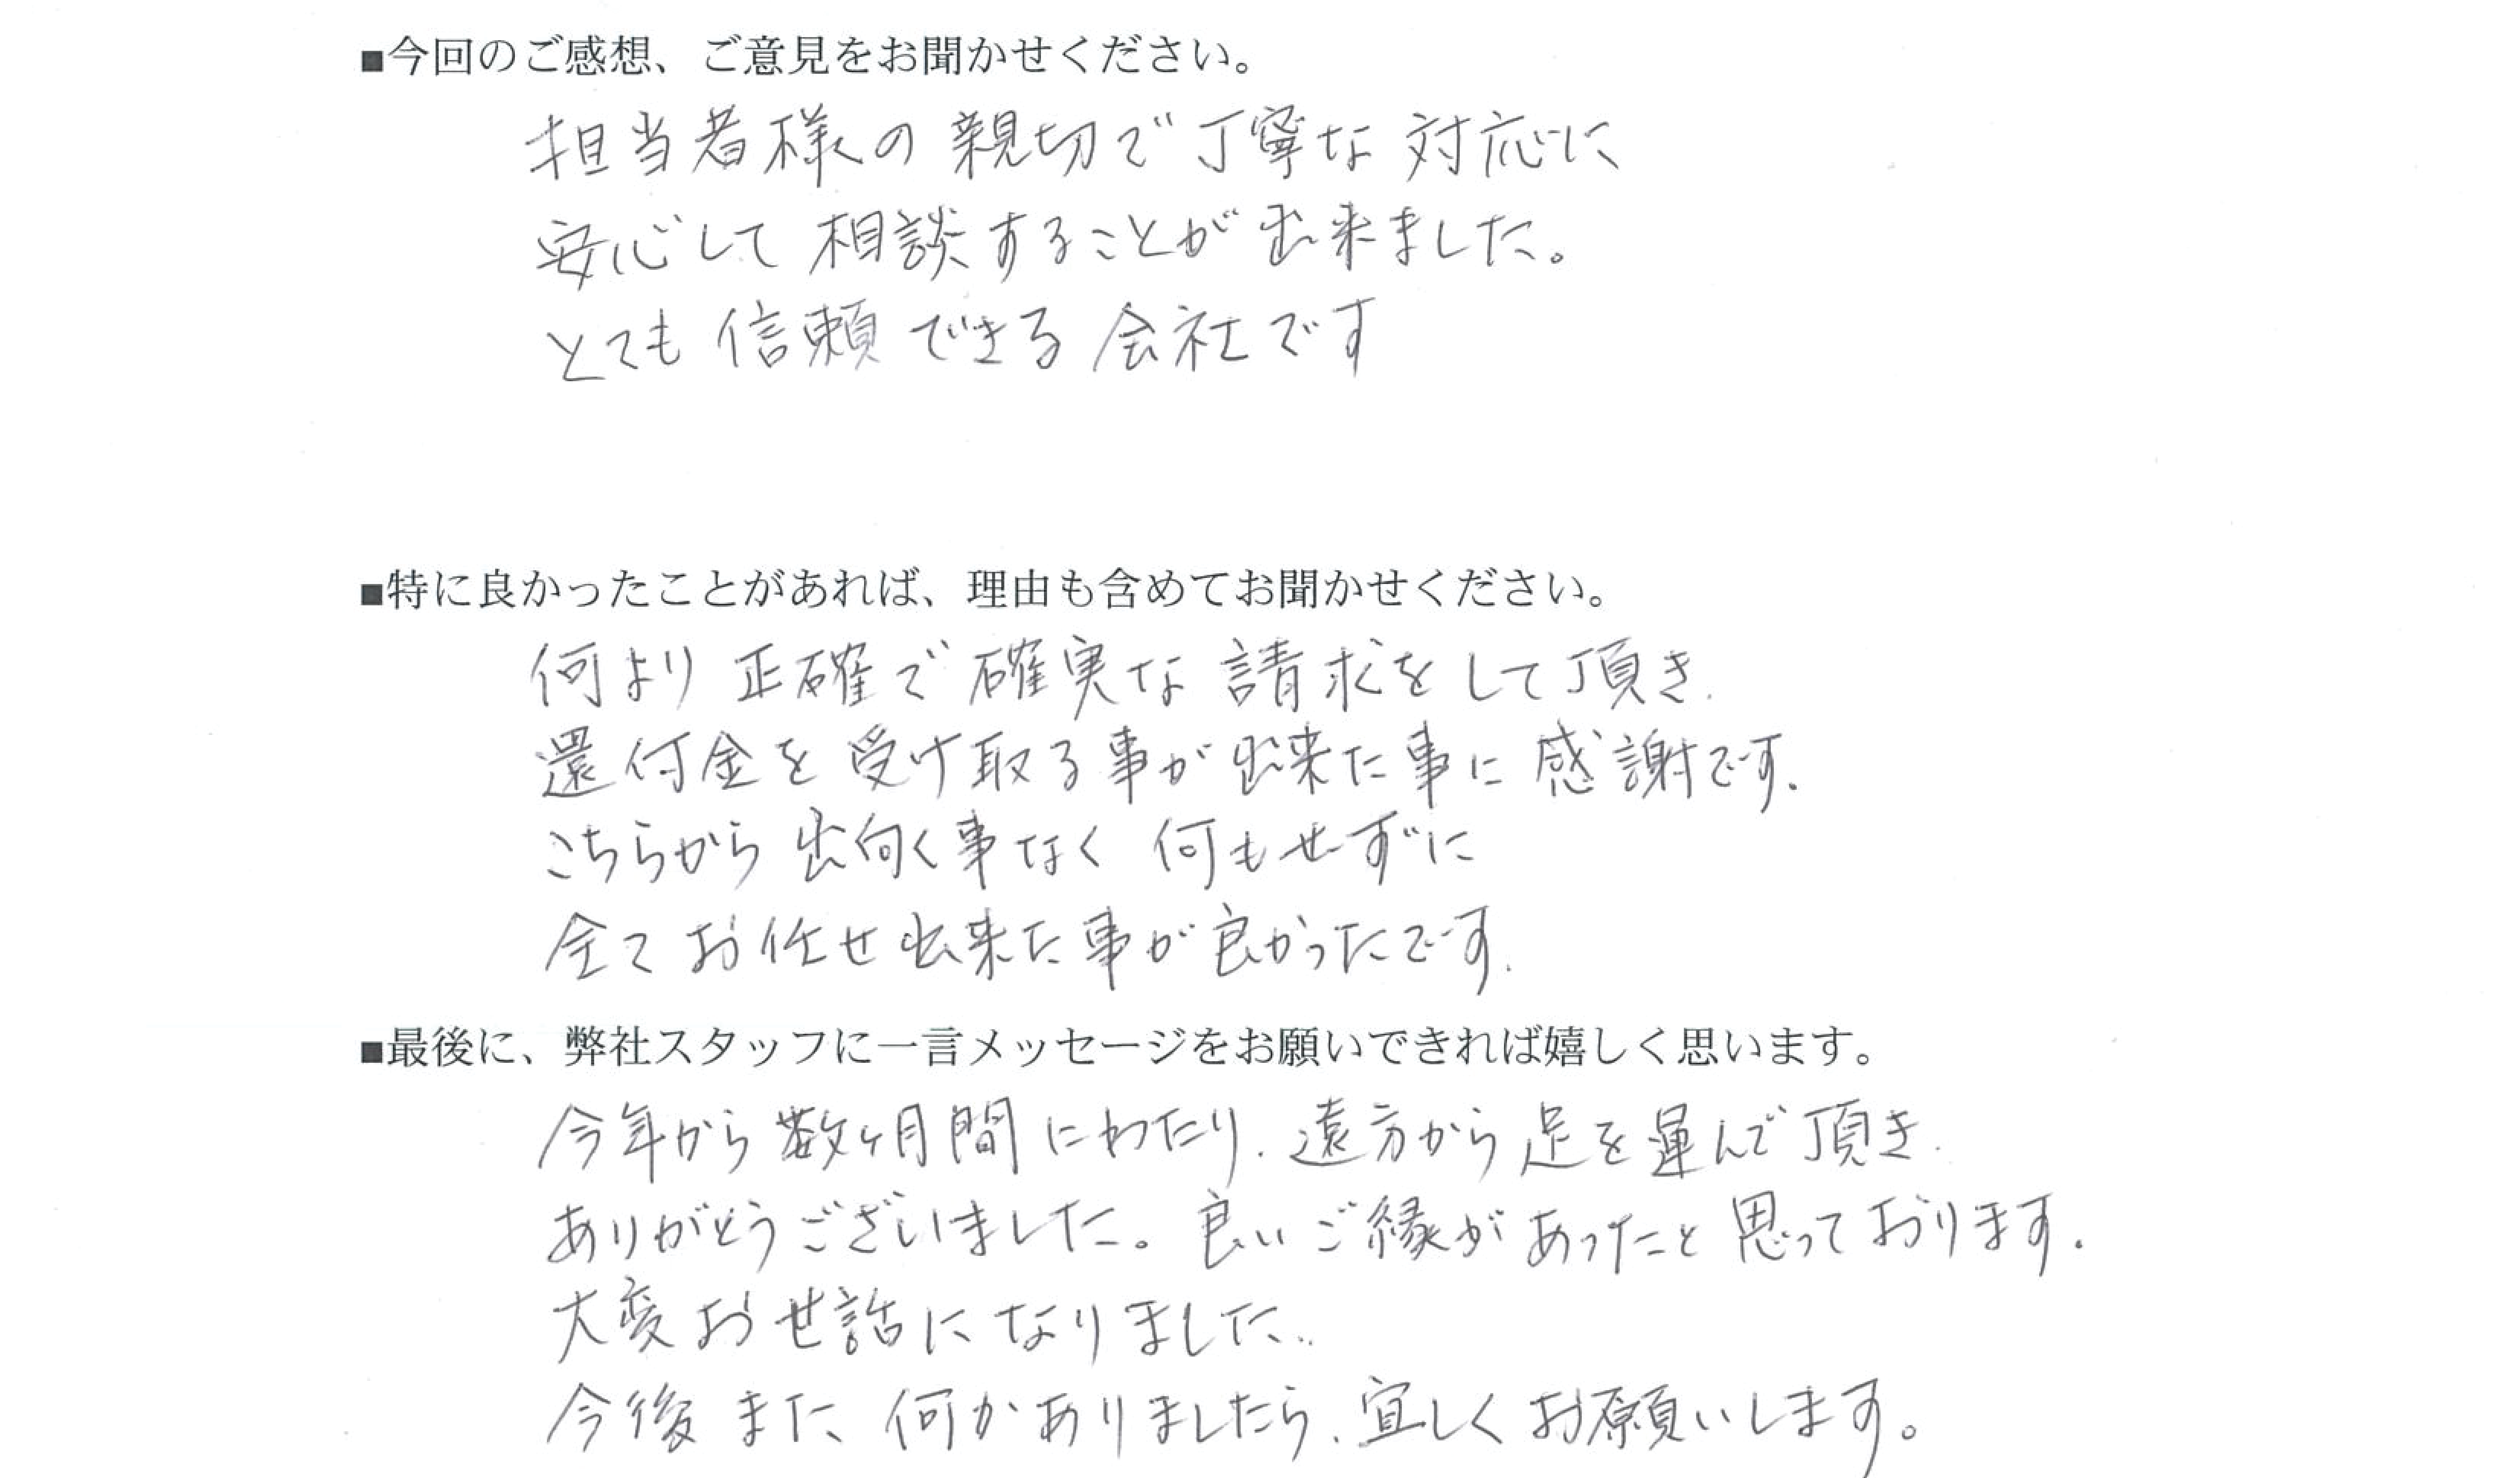 ■今回のご感想、ご意見をお聞かせください。
担当者様の親切で丁寧な対応に
安心して相談することが出来ました。
とても信頼できる会社です
■特に良かったことがあれば、理由も含めてお聞かせください。
何より正確で確実な請求をして頂き、
還付金を受け取る事が出来た事に感謝です。
こちらから出向く事なく何もせずに
全てお任せ出来た事が良かったです。
■最後に、弊社スタッフに一言メッセージをお願いできれば嬉しく思います。
今年から数ヶ月間にわたり、遠方から足を運んで頂き、
ありがとうございました。良いご縁があったと思っております。
大変お世話になりました。
今後また、何かありましたら、宜しくお願いします。